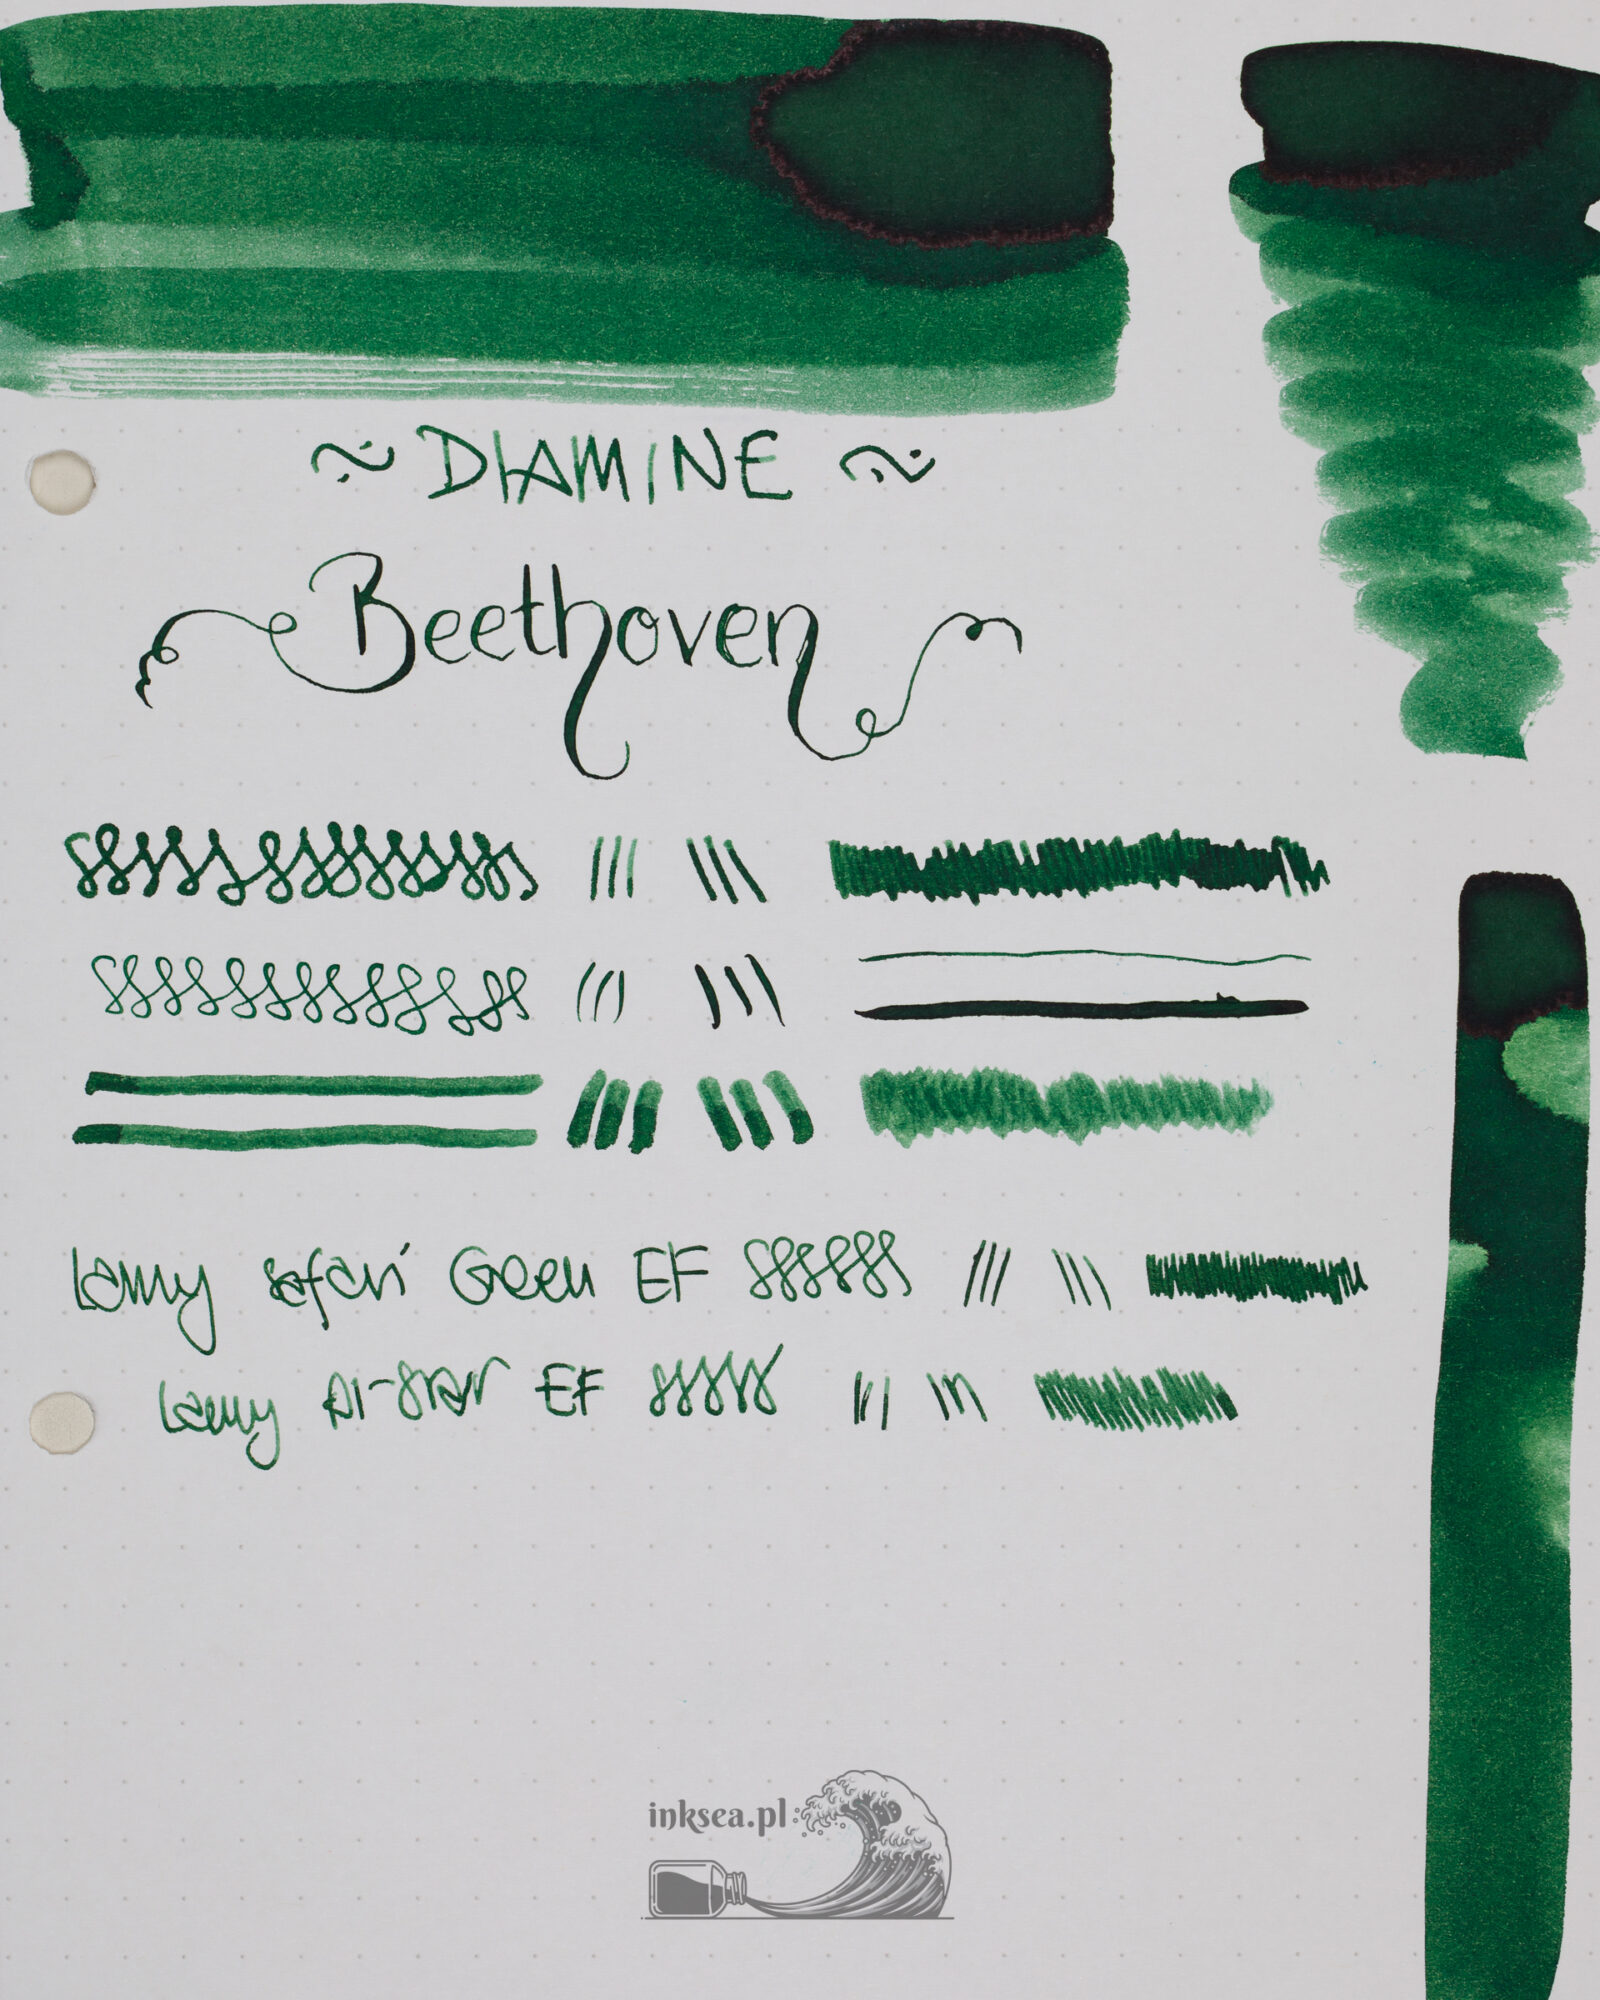 ~ DIAMINE ~
Beethoven
Lamy Safari Green EF
Lamy Al-Star EF
inksea.pl